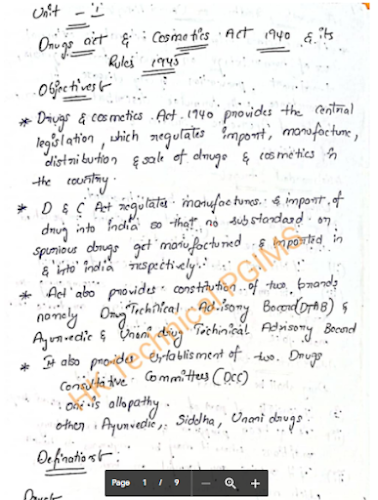 Unit - I
Drugs act & Cosmetics Act 1940 & its
Rules 1945
Objectives:
* Drugs & cosmetics Act 1940 provides the central
legislation, which regulates import, manufacture,
distribution & sale of drugs & cosmetics in
the country.
* D & C Act regulates manufactures & import of
drug into India so that no substandard or
spurious drugs get manufactured & imported in
& into india respectively.
* Act also provides constitution of two brands
namely Drug Techitical Advisory Board (DTAB) &
Ayurvedic & Unani drug Techinical Advisory Board
* It also provides establisment of two Drugs
Consultative Committers (DCC)
one is allopathy
other Ayurvedic, Siddha, Unani drugs.
Definations:
HK Technical PGIMS
Page 1 / 9